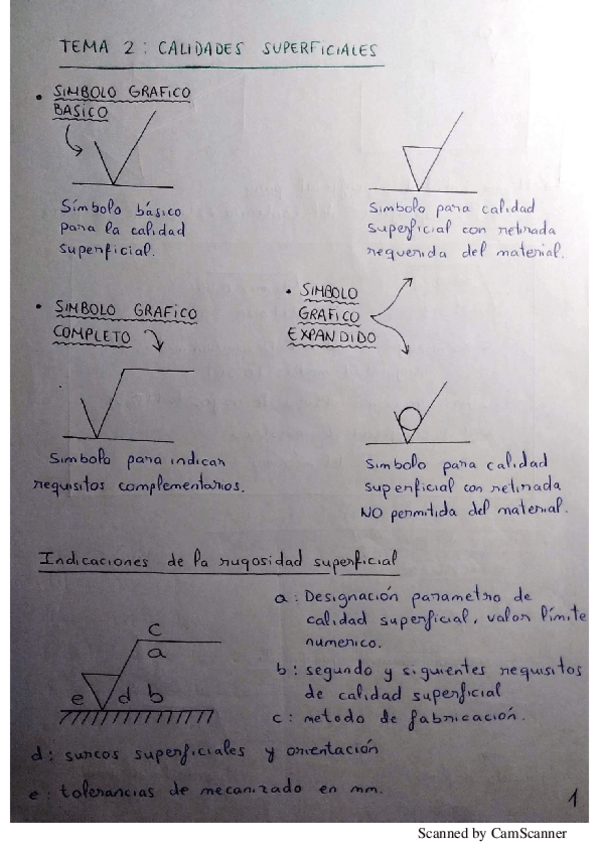 TEMA 2: CALIDADES SUPERFICIALES
• SIMBOLO GRAFICO
BASICO
Símbolo básico
para la calidad
superficial.
Simbolo para calidad
superficial con retirada
requerida del material.
• SIMBOLO GRAFICO
COMPLETO
• SIMBOLO
GRAFICO
EXPANDIDO
Simbolo para indicar
requisitos complementarios.
Simbolo para calidad
superficial con retirada
NO permitida del material.
Indicaciones de la rugosidad superficial
c
a
e d b
a: Designación parametro de
calidad superficial, valor límite
numerico.
b: segundo y siguientes requisitos
de calidad superficial
c: metodo de fabricación.
d: surcos superficiales y orientación
e: tolerancias de mecanizado en mm.
1
Scanned by CamScanner